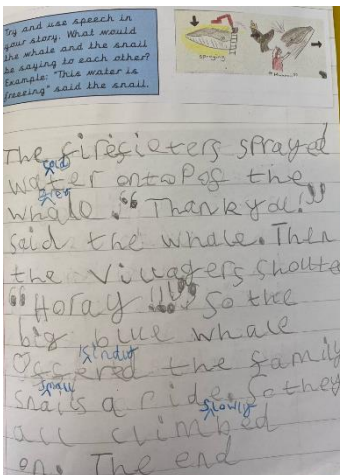 Try and use speech in
your story. What would
the whale and the snail
be saying to each other?
Example: "This water is
freezing" said the snail.
spraying
The firefieters sprayed
cold
water ontopog the
grey
whale. "Thank you!"
said the whale. Then
the villagers shoute
"Horay !!!" So the
big blue whale
kindly
offered the family
small
snails a ride. So they
slowly
all climbed
on. The end